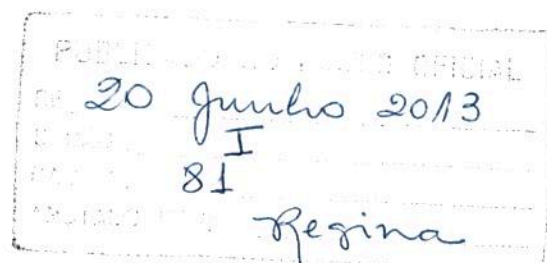 20 Junho 2013
I
81
Regina